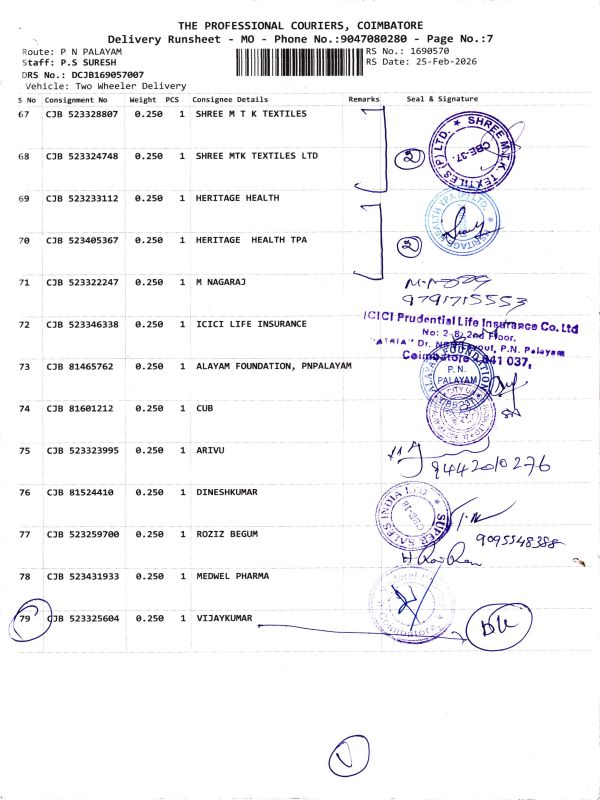 THE PROFESSIONAL COURIERS, COIMBATORE
Delivery Runsheet - MO - Phone No.:9047080280 - Page No.:7
Route: P N PALAYAM
RS No.: 1690570
Staff: P.S SURESH
RS Date: 25-Feb-2026
DRS No.: DCJB169057007
Vehicle: Two Wheeler Delivery
S No Consignment No Weight PCS Consignee Details Remarks Seal & Signature
67 CJB 523328807 0.250 1 SHREE M T K TEXTILES
SHREE M.T.K. TEXTILES (P) LTD.
CBE-37.
2
68 CJB 523324748 0.250 1 SHREE MTK TEXTILES LTD
69 CJB 523233112 0.250 1 HERITAGE HEALTH
HERITAGE HEALTH TPA LTD.
2
70 CJB 523405367 0.250 1 HERITAGE HEALTH TPA
71 CJB 523322247 0.250 1 M NAGARAJ
9791715553
72 CJB 523346338 0.250 1 ICICI LIFE INSURANCE
ICICI Prudential Life Insurance Co. Ltd
No: 2-8, 2nd Floor,
Dr. Layout, P.N. Palayam
Coimbatore 641 037,
73 CJB 81465762 0.250 1 ALAYAM FOUNDATION, PNPALAYAM
ALAYAM FOUNDATION
P.N.
PALAYAM
74 CJB 81601212 0.250 1 CUB
75 CJB 523323995 0.250 1 ARIVU
9442010276
76 CJB 81524410 0.250 1 DINESHKUMAR
SUPER SALES INDIA LTD
77 CJB 523259700 0.250 1 ROZIZ BEGUM
9095548388
78 CJB 523431933 0.250 1 MEDWEL PHARMA
79 CJB 523325604 0.250 1 VIJAYKUMAR